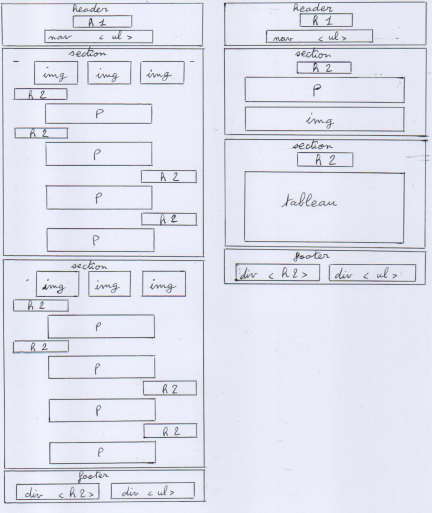 header
h 1
nav < ul >
section
img img img
h 2
p
h 2
p
h 2
p
h 2
p
section
img img img
h 2
p
h 2
p
h 2
p
h 2
p
footer
div < h 2 > div < ul >
header
h 1
nav < ul >
section
h 2
p
img
section
h 2
tableau
footer
div < h 2 > div < ul >